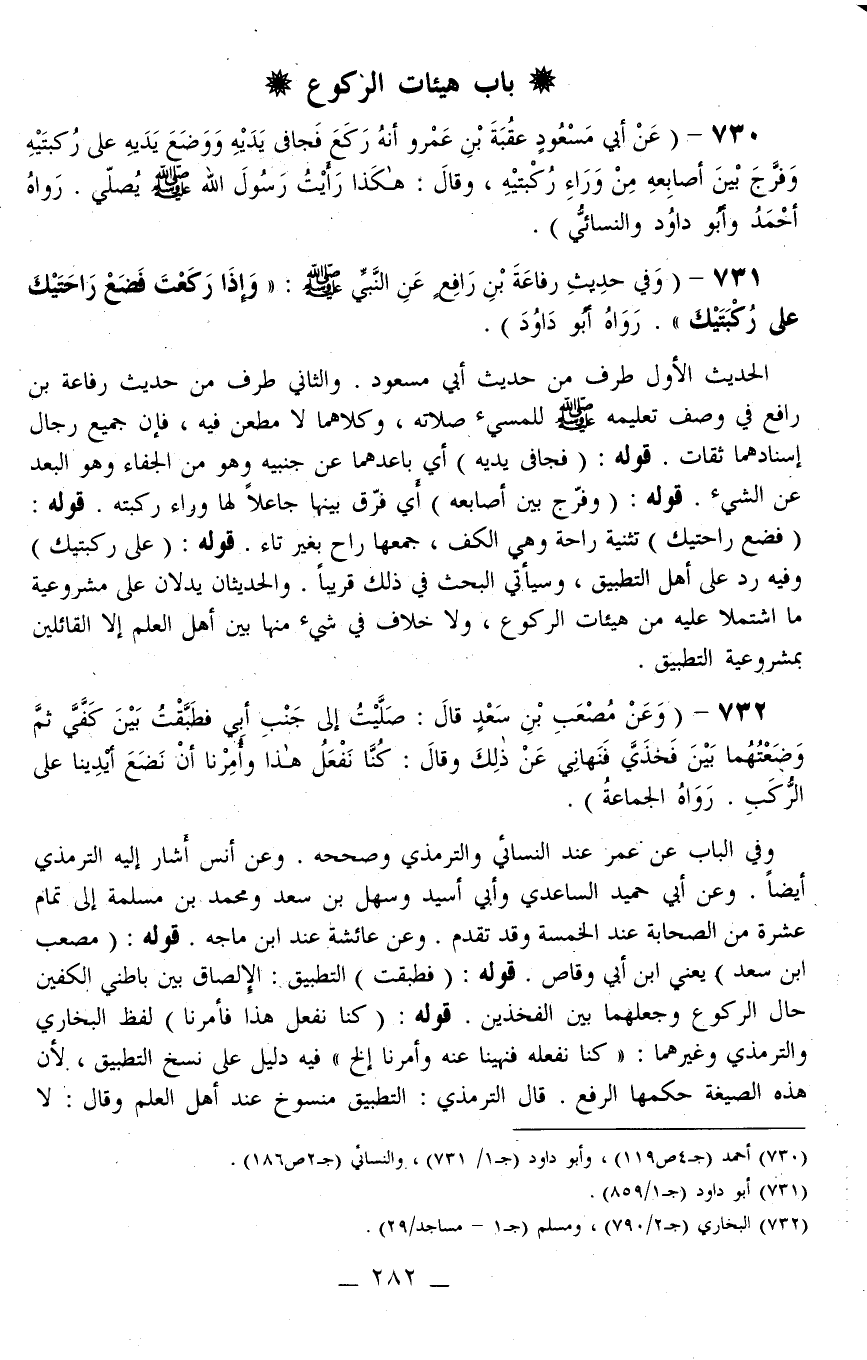 باب هيئات الركوع
٧٣٠ - ( عَنْ أبي مَسْعُودٍ عقُبَةَ بْنِ عَمْرو أنهُ رَكَعَ فَجافى يَدَيْهِ وَوَضَعَ يَدَيهِ على رُكبتَيْهِ
وَفَرَّجَ بْينَ أصابِعهِ مِنْ وَرَاءِ رُكْبتيْهِ ، وقالَ : هـٰكَذا رَأَيْتُ رَسُولَ الله ﷺ يُصلّي . رَواهُ
أحْمَدُ وأبُو داوُد والنسائيُّ ) .
٧٣١ - ( وَفي حديثِ رفاعَةَ بْنِ رَافِعٍ عَنِ النَّبيِّ ﷺ : « وَإِذَا رَكَعْتَ فَضَعْ رَاحَتَيْكَ
على رُكْبَتَيْكَ » . رَوَاهُ أبُو دَاوُدَ ) .
الحديث الأول طرف من حديث أبي مسعود . والثاني طرف من حديث رفاعة بن
رافع في وصف تعليمه ﷺ للمسيء صلاته ، وكلاهما لا مطعن فيه ، فإن جميع رجال
إسنادهما ثقات . قوله : ( فجافى يديه ) أي باعدهما عن جنبيه وهو من الجفاء وهو البعد
عن الشيء . قوله : ( وفرّج بين أصابعه ) أي فرّق بينها جاعلاً لها وراء ركبته . قوله :
( فضع راحتيك ) تثنية راحة وهي الكف ، جمعها راح بغير تاء . قوله : ( على ركبتيك )
وفيه رد على أهل التطبيق ، وسيأتي البحث في ذلك قريباً . والحديثان يدلان على مشروعية
ما اشتملا عليه من هيئات الركوع ، ولا خلاف في شيء منها بين أهل العلم إلا القائلين
بمشروعية التطبيق .
٧٣٢ - ( وَعَنْ مُصْعَبِ بْنِ سَعْدٍ قالَ : صَلَّيْتُ إلى جَنْبِ أبي فطَبَّقْتُ بَيْنَ كَفَّيَّ ثمَّ
وَضَعْتُهُما بَيْنَ فَخذَيَّ فَنَهاني عَنْ ذٰلِكَ وقالَ : كُنَّا نَفْعَلُ هـٰذا وأُمِرْنا أنْ نَضَعَ أيْدِينا على
الرُّكَبِ . رَوَاهُ الجماعةُ ) .
وفي الباب عن عمر عند النسائي والترمذي وصححه . وعن أنس أشار إليه الترمذي
أيضاً . وعن أبي حميد الساعدي وأبي أسيد وسهل بن سعد ومحمد بن مسلمة إلى تمام
عشرة من الصحابة عند الخمسة وقد تقدم . وعن عائشة عند ابن ماجه . قوله : ( مصعب
ابن سعد ) يعني ابن أبي وقاص . قوله : ( فطبقت ) التطبيق : الإلصاق بين باطني الكفين
حال الركوع وجعلهما بين الفخذين . قوله : ( كنا نفعل هذا فأمرنا ) لفظ البخاري
والترمذي وغيرهما : « كنا نفعله فنهينا عنه وأمرنا إلخ » فيه دليل على نسخ التطبيق ، لأن
هذه الصيغة حكمها الرفع . قال الترمذي : التطبيق منسوخ عند أهل العلم وقال : لا
(٧٣٠) أحمد (جـ٤ص١١٩) ، وأبو داود (جـ١/ ٧٣١) ، والنسائي (جـ٢ص١٨٦) .
(٧٣١) أبو داود (جـ٨٥٩/١) .
(٧٣٢) البخاري (جـ٧٩٠/٢) ، ومسلم (جـ١ - مساجد/٢٩) .
ـ ٢٨٢ ـ